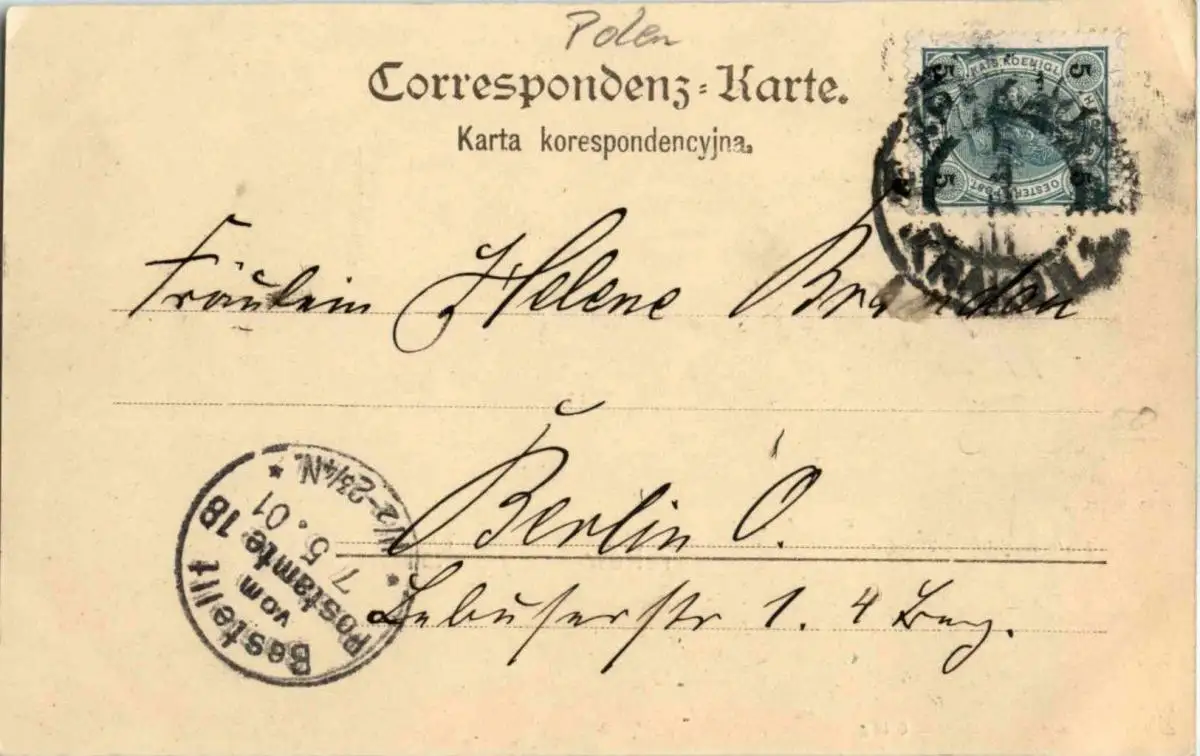 Polen
Correspondenz-Karte.
Karta korespondencyjna.
5 KAIS. KOENIGL. 5
5 OESTERR. POST. 5
KRAKAU
Fräulein Helene Branden
Berlin O.
Lebuserstr 1. 4 Trg.
Bestellt
vom
Postamte 18
7 5.01
1/2-2 3/4 N.